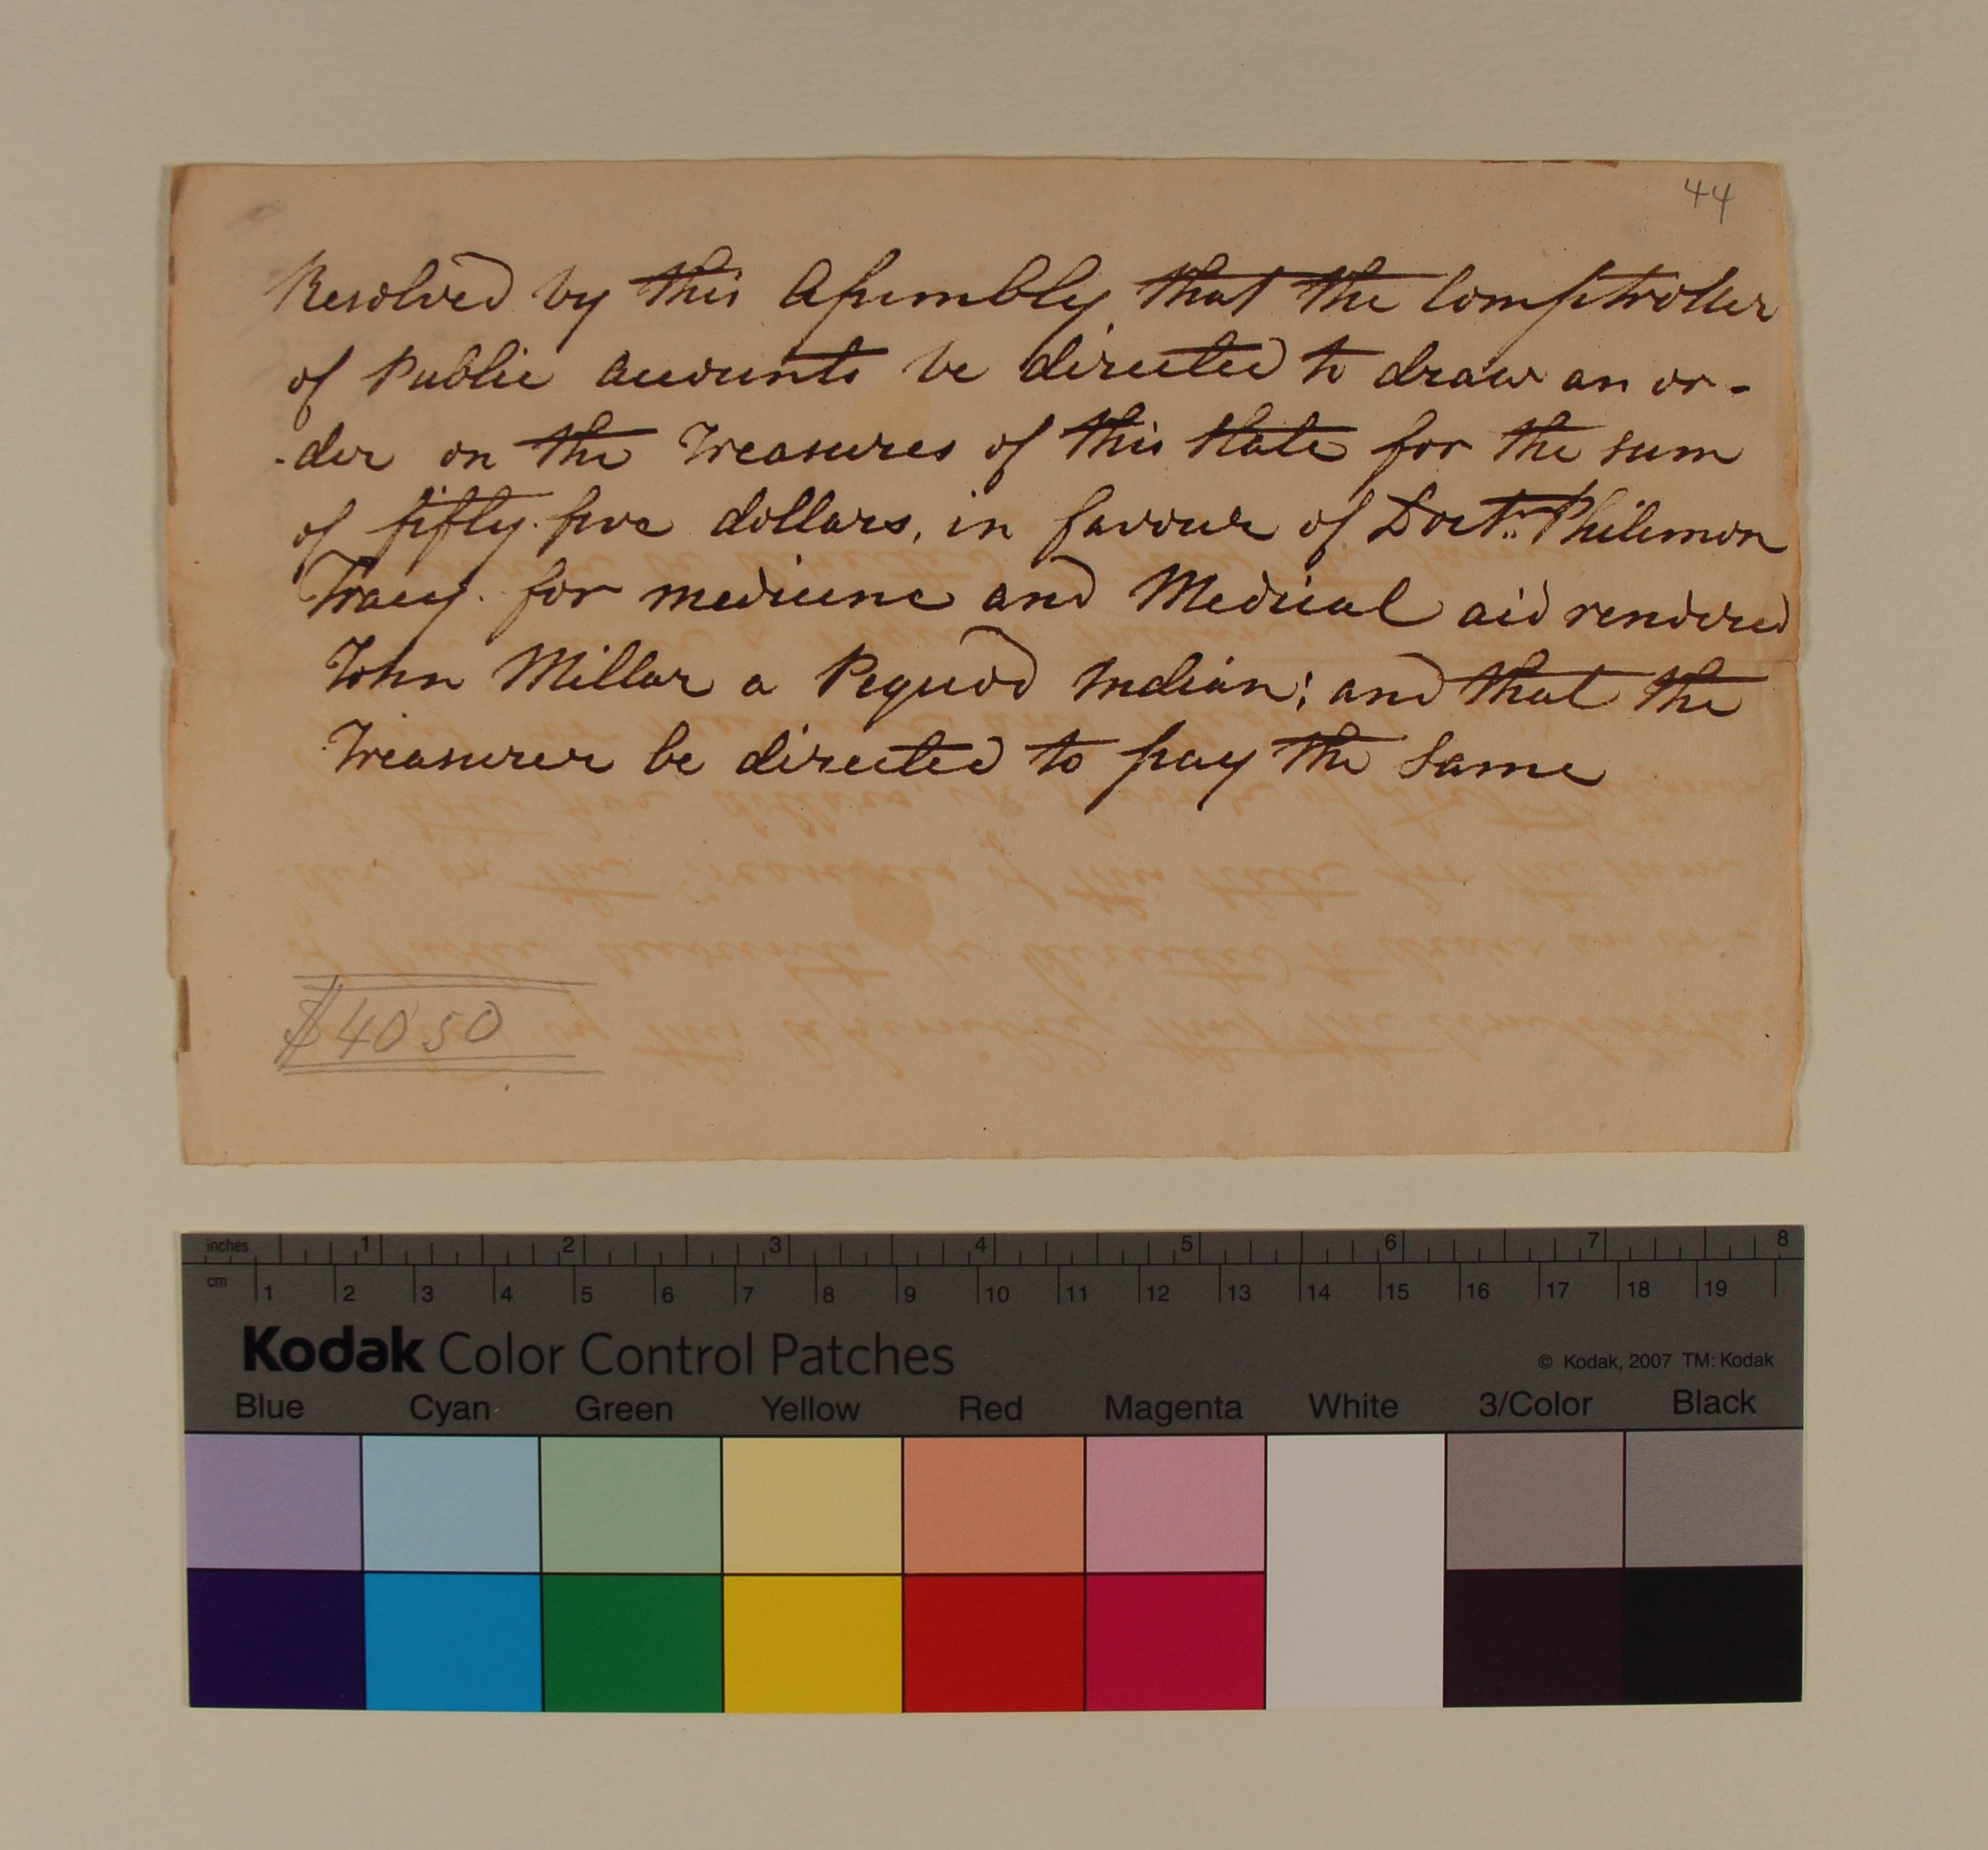 44
Resolved by this Assembly that the Comptroller
of Public accounts be directed to draw an or-
-der on the Treasures of this State for the sum
of fifty five dollars, in favour of Doctr. Philemon
Tracy. for medicine and Medical aid rendered
John Millar a Pequod Indian; and that the
Treasurer be directed to pay the same
$40 50
inches 1 2 3 4 5 6 7 8
cm 1 2 3 4 5 6 7 8 9 10 11 12 13 14 15 16 17 18 19
Kodak Color Control Patches
© Kodak, 2007 TM: Kodak
Blue Cyan Green Yellow Red Magenta White 3/Color Black